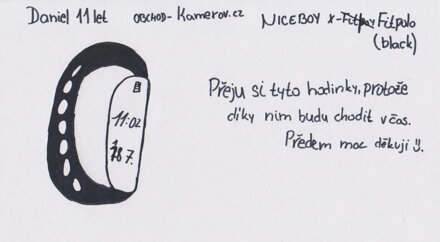 Daniel 11 let
OBCHOD - Kamerov.cz
NICEBOY X-Fitpay Fitpolo
(black)
11:02
28 7.
Přeju si tyto hodinky, protože
díky nim budu chodit včas.
Předem moc děkuji